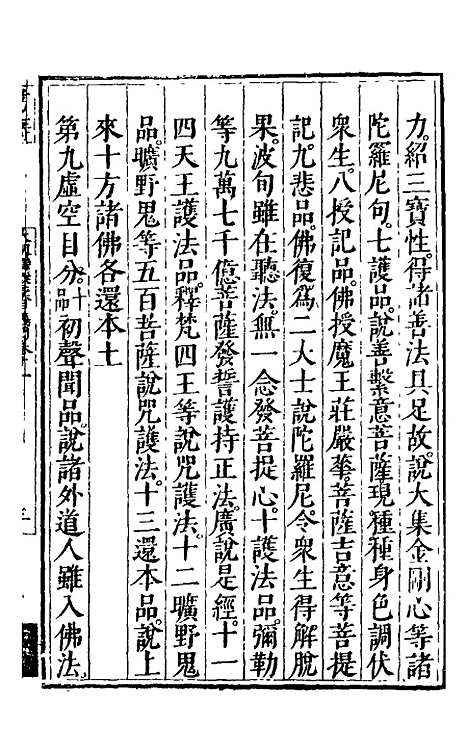 力。紹三寶性。得諸善法具足故。說大集金剛心等諸
陀羅尼句。七護品。說善繫意菩薩現種種身色調伏
眾生。八授記品。佛授魔王莊嚴華。菩薩吉意等菩提
記。九悲品。佛復為二大士說陀羅尼。令眾生得解脫
果。波旬雖在聽法。無一念發菩提心。十護法品。彌勒
等九萬七千億菩薩發誓護持正法。廣說是經。十一
四天王護法品。釋梵四王等說咒護法。十二曠野鬼
品。曠野鬼等五百菩薩說咒護法。十三還本品。說上
來十方諸佛各還本土
第九虛空目分。十品初聲聞品。說諸外道人雖入佛法。